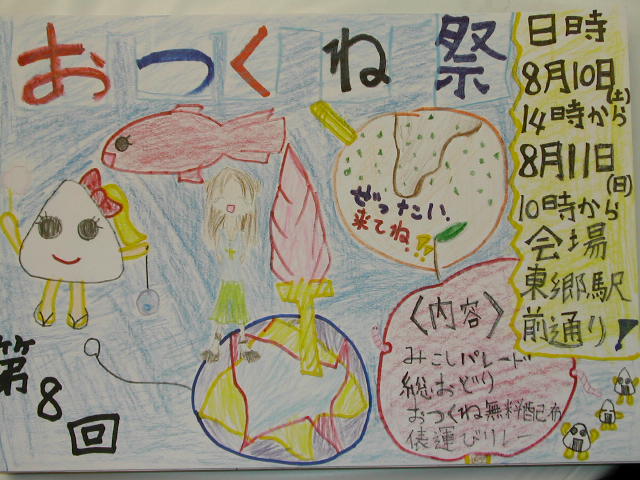 おつくね祭
日時
8月10日(土)
14時から
8月11日(日)
10時から
会場
東郷駅
前通り!
ぜったい!
来てね!!
〈内容〉
みこしパレード
総おどり
おつくね無料配布
俵運びリレー
第8回